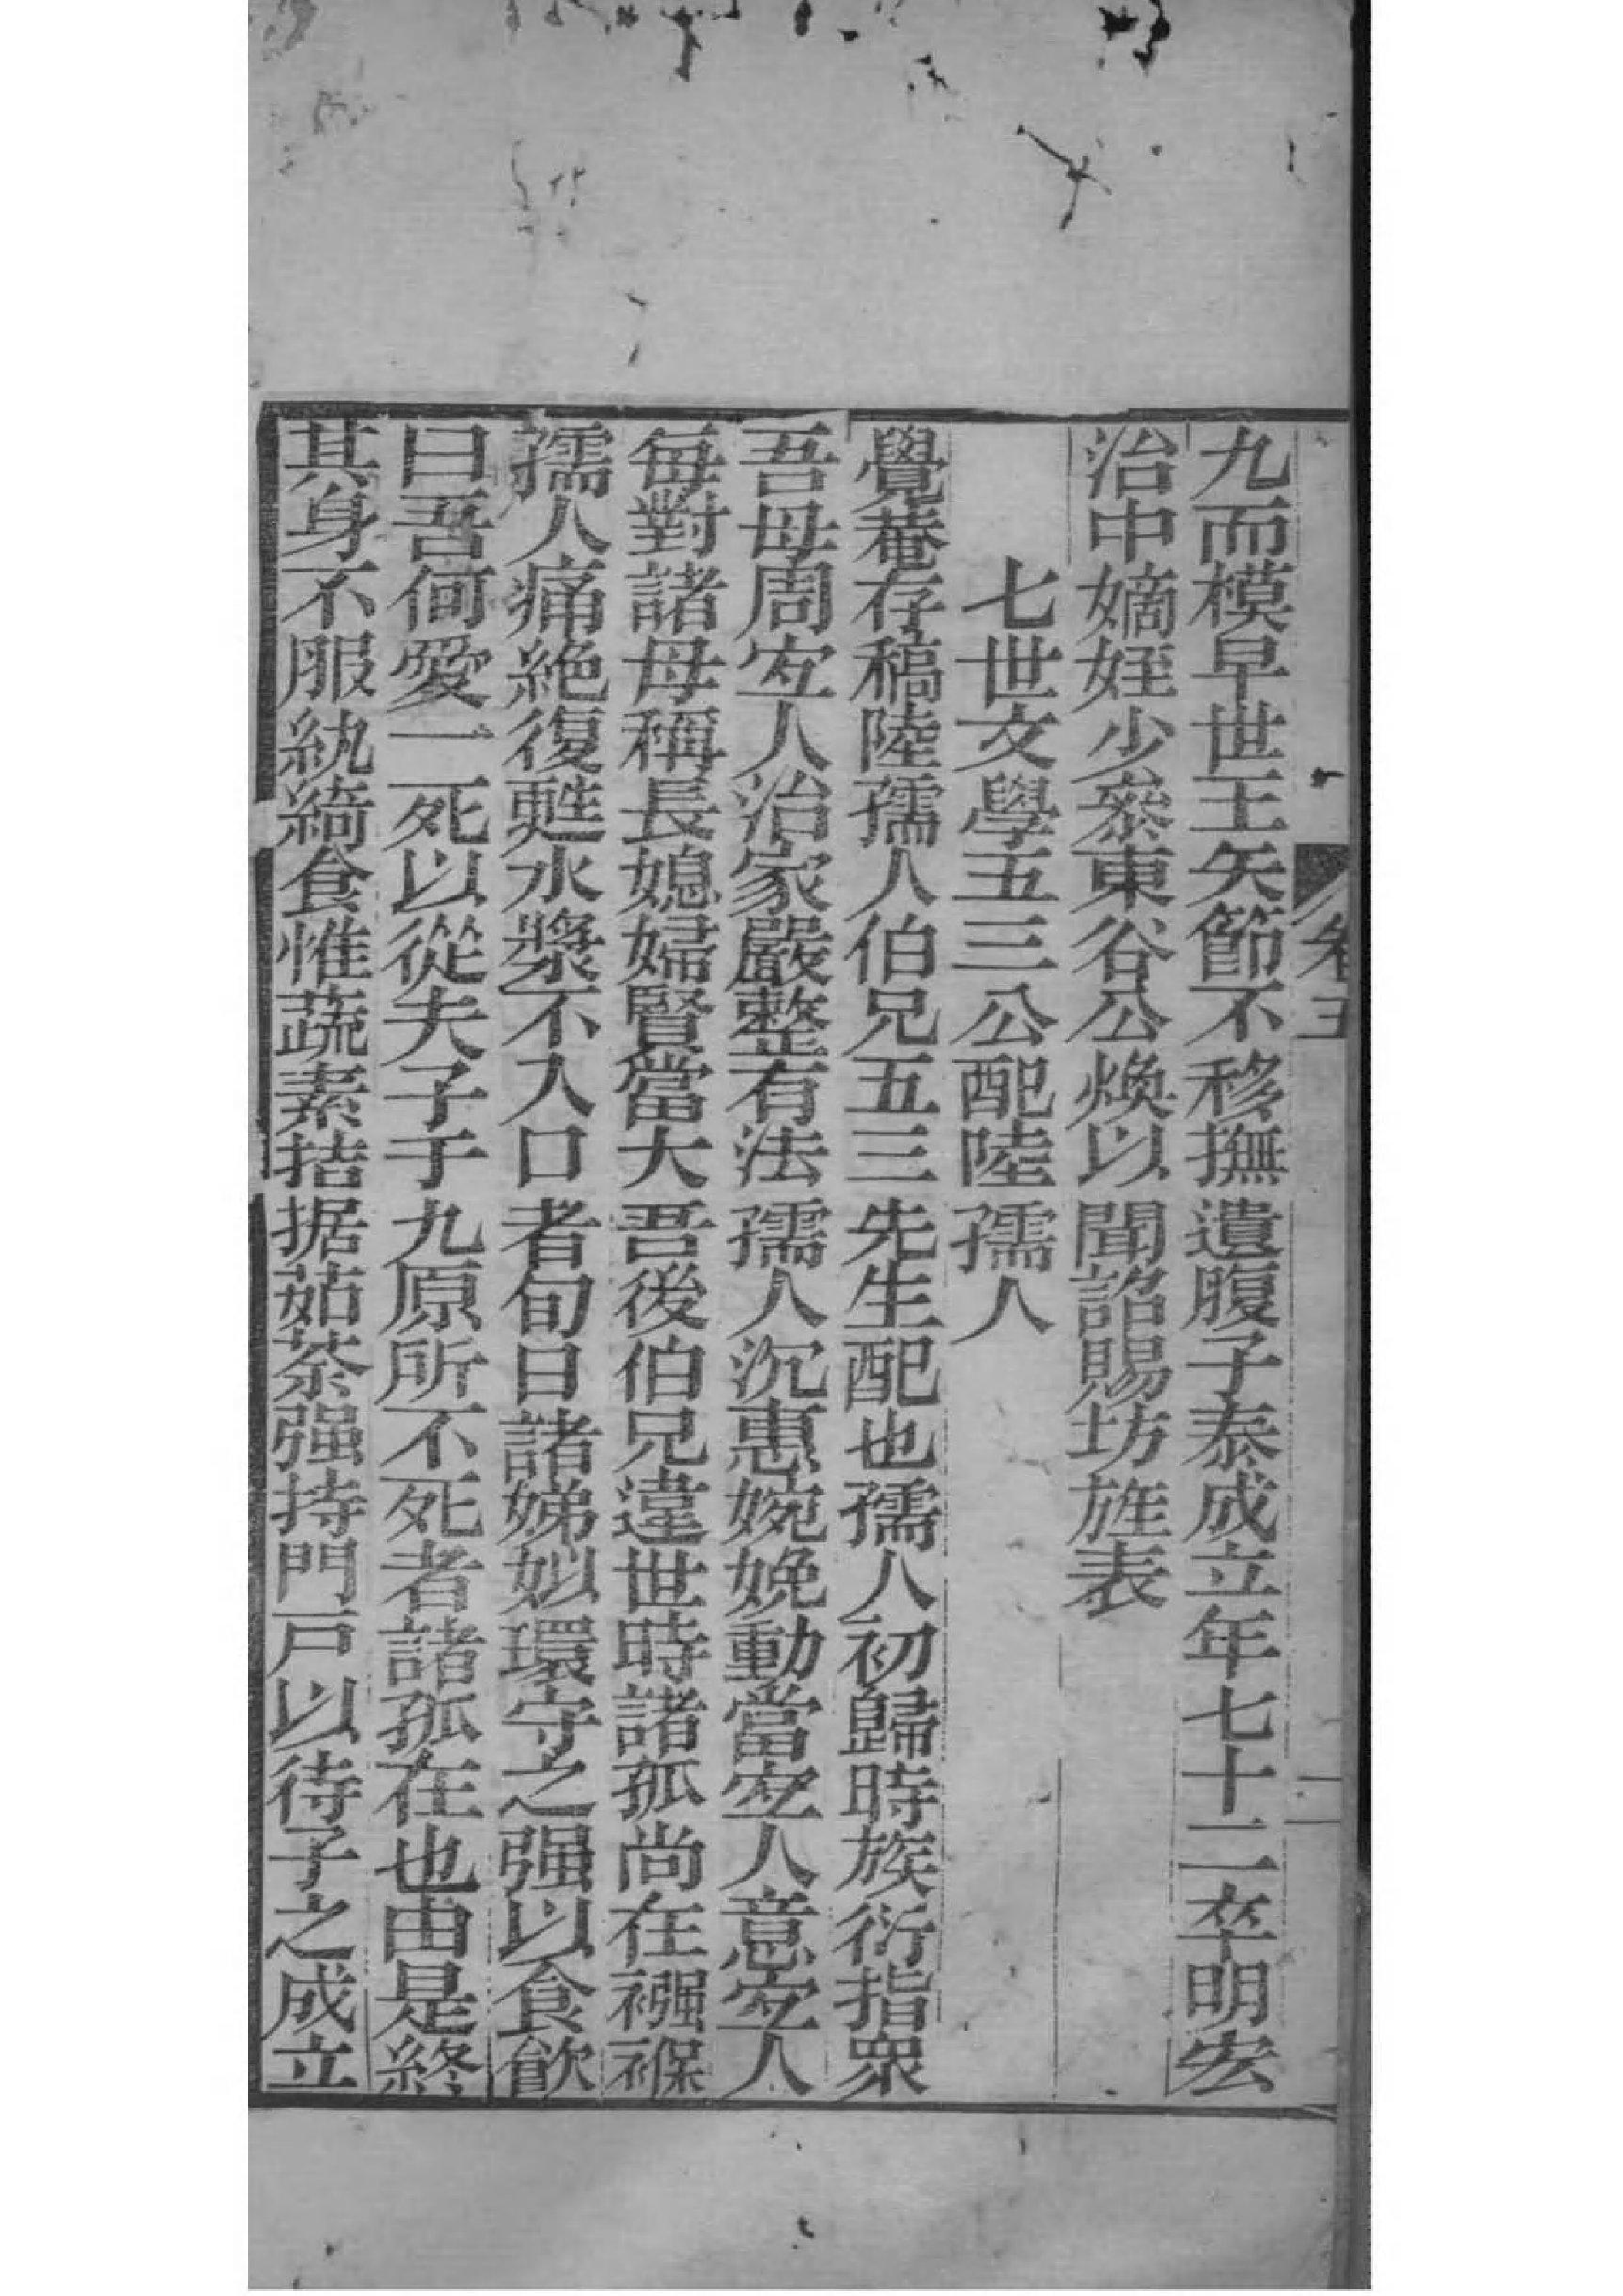 九而模早世王矢節不移撫遺腹子泰成立年七十二卒明宏
治中嫡姪少叅東谷公煥以聞詔賜坊旌表
七世文學五三公配陸孺人
覺菴存稿陸孺人伯兄五三先生配也孺人初歸時族衍指眾
吾母周宜人治家嚴整有法孺人沉惠婉娩動當宜人意宜人
每對諸母稱長媳婦賢當大吾後伯兄違世時諸孤尚在襁褓
孺人痛絶復甦水漿不入口者旬日諸娣姒環守之强以食飮
曰吾何愛一死以從夫子于九原所不死者諸孤在也由是終
其身不服紈綺食惟蔬素拮据茹荼强持門戸以待子之成立